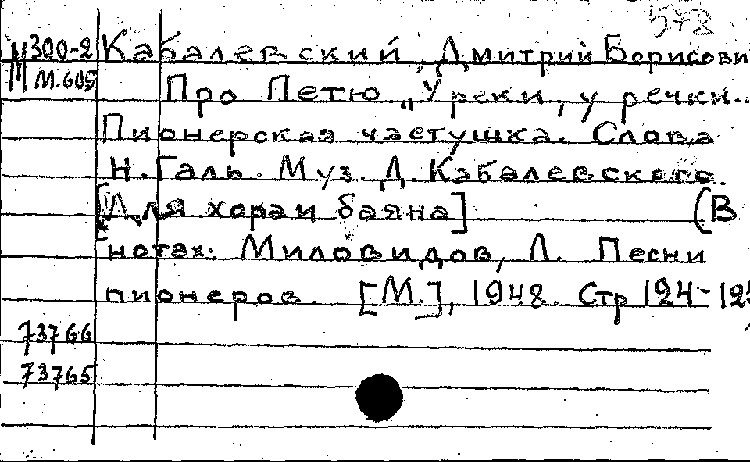 578
М300-2 Кабалевский, Дмитрий Борисови
М.605 Про Петю „У реки, у речки..
Пионерская частушка. Слова
Н. Галь. Муз. Д. Кабалевского.
[Для хора и баяна] (В
нотах: Миловидов, Л. Песни
пионеров. [М.], 1948. Стр 124-125
73766
73765